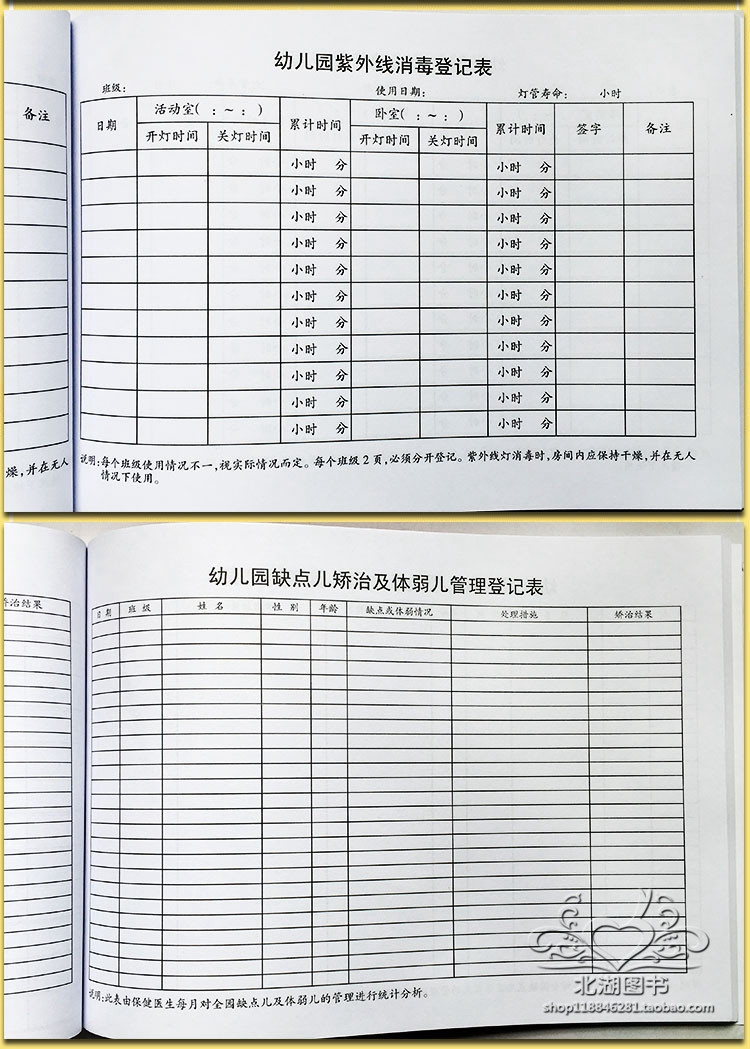 幼儿园紫外线消毒登记表
班级： 使用日期： 灯管寿命： 小时
备注
日期 活动室( : ～ : ) 累计时间 卧室( : ～ : ) 累计时间 签字 备注
开灯时间 关灯时间 开灯时间 关灯时间
小时 分 小时 分
小时 分 小时 分
小时 分 小时 分
小时 分 小时 分
小时 分 小时 分
小时 分 小时 分
小时 分 小时 分
小时 分 小时 分
小时 分 小时 分
小时 分 小时 分
小时 分 小时 分
燥，并在无人
说明：每个班级使用情况不一，视实际情况而定。每个班级2页，必须分开登记。紫外线灯消毒时，房间内应保持干燥，并在无人
情况下使用。
幼儿园缺点儿矫治及体弱儿管理登记表
矫治结果
日期 班级 姓名 性别 年龄 缺点或体弱情况 处理措施 矫治结果
说明：此表由保健医生每月对全园缺点儿及体弱儿的管理进行统计分析。
北湖图书
shop118846281.taobao.com